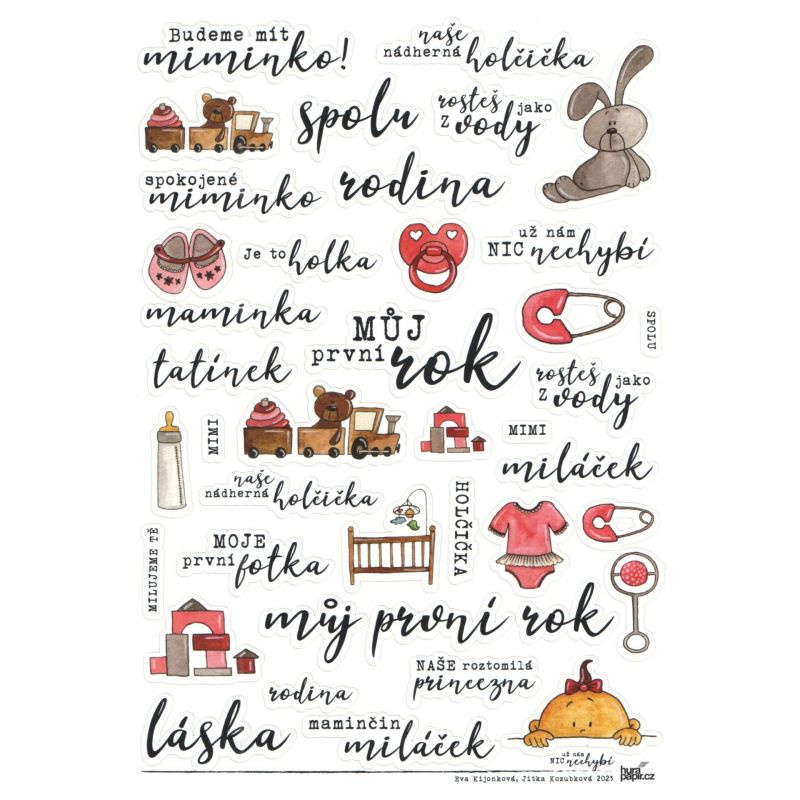 Budeme mít
miminko!
naše
nádherná holčička
spolu
rosteš jako
z vody
spokojené
miminko
rodina
Je to holka
už nám
NIC nechybí
maminka
MŮJ
první rok
SPOLU
tatínek
rosteš jako
z vody
MIMI
MIMI
miláček
naše
nádherná holčička
HOLČIČKA
MILUJEME TĚ
MOJE
první fotka
můj první rok
NAŠE roztomilá
princezna
rodina
láska
maminčin
miláček
už nám
NIC nechybí
hurá
papír.cz
Eva Kijonková, Jitka Kozubková 2023